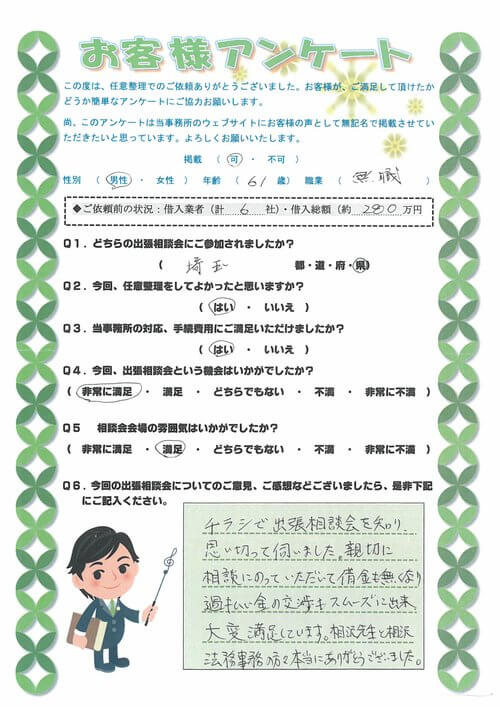 お客様アンケート
この度は、任意整理でのご依頼ありがとうございました。お客様が、ご満足して頂けたか
どうか簡単なアンケートにご協力お願いします。
尚、このアンケートは当事務所のウェブサイトにお客様の声として無記名で掲載させてい
ただきたいと思っています。よろしくお願いいたします。
掲載 （ 可 ・ 不可 ）
性別 （ 男性 ・ 女性 ） 年齢 （ 61 歳） 職業 （ 無職 ）
◆ご依頼前の状況：借入業者（計 6 社）・借入総額（約 280 万円
Q1．どちらの出張相談会にご参加されましたか？
（ 埼玉 都・道・府・県）
Q2．今回、任意整理をしてよかったと思いますか？
（ はい ・ いいえ ）
Q3．当事務所の対応、手続費用にご満足いただけましたか？
（ はい ・ いいえ ）
Q4．今回、出張相談会という機会はいかがでしたか？
（ 非常に満足 ・ 満足 ・ どちらでもない ・ 不満 ・ 非常に不満 ）
Q5 相談会会場の雰囲気はいかがでしたか？
（ 非常に満足 ・ 満足 ・ どちらでもない ・ 不満 ・ 非常に不満 ）
Q6．今回の出張相談会についてのご意見、ご感想などございましたら、是非下記
にご記入ください。
チラシで出張相談会を知り、
思い切って伺いました。親切に
相談にのっていただいて借金も無くなり
過払い金の交渉もスムーズに出来
大変満足しています。相沢先生と相沢
法務事務の方々本当にありがとうございました。